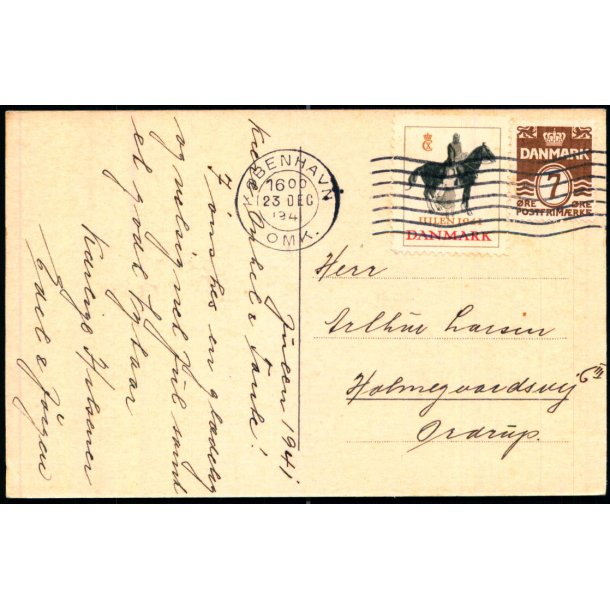 Julen 1941
Kære Onkel & Tante!
I ønskes en glædelig
og velsignet Jul samt
et godt Nytaar
Kærlige Hilsener
Edel & Jörgen
KØBENHAVN
1600
23 DEC
194
OMK.
JULEN 1941
DANMARK
DANMARK
7
ØRE ØRE
POSTFRIMÆRKE
Herr
Arthur Larsen
Holmegaardsvej
Ordrup.